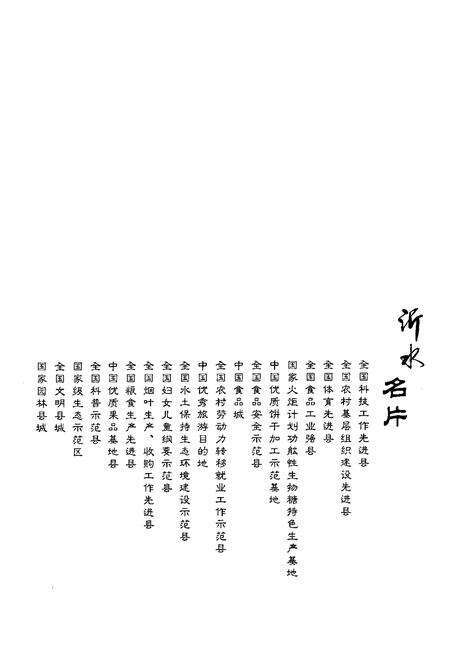 沂水名片
全国科技工作先进县
全国农村基层组织建设先进县
全国体育先进县
全国食品工业强县
国家火炬计划功能性生物糖特色生产基地
中国优质饼干加工示范基地
全国食品安全示范县
中国食品城
全国农村劳动力转移就业工作示范县
中国优秀旅游目的地
全国水土保持生态环境建设示范县
全国妇女儿童纲要示范县
全国烟叶生产、收购工作先进县
全国粮食生产先进县
中国优质果品基地县
全国科普示范县
国家级生态示范区
全国文明县城
国家园林县城